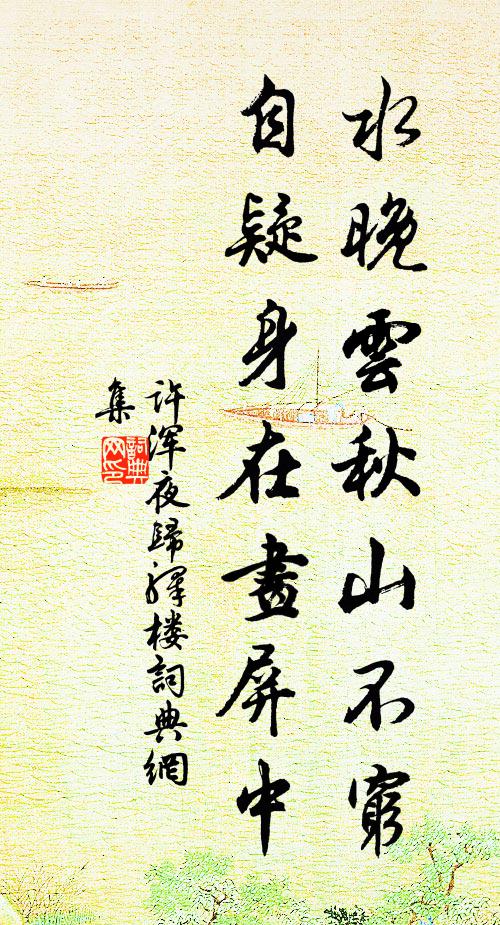 水晚雲秋山不窮
自疑身在畫屏中
许浑夜歸驛楼詞典網
集
詞典
网印